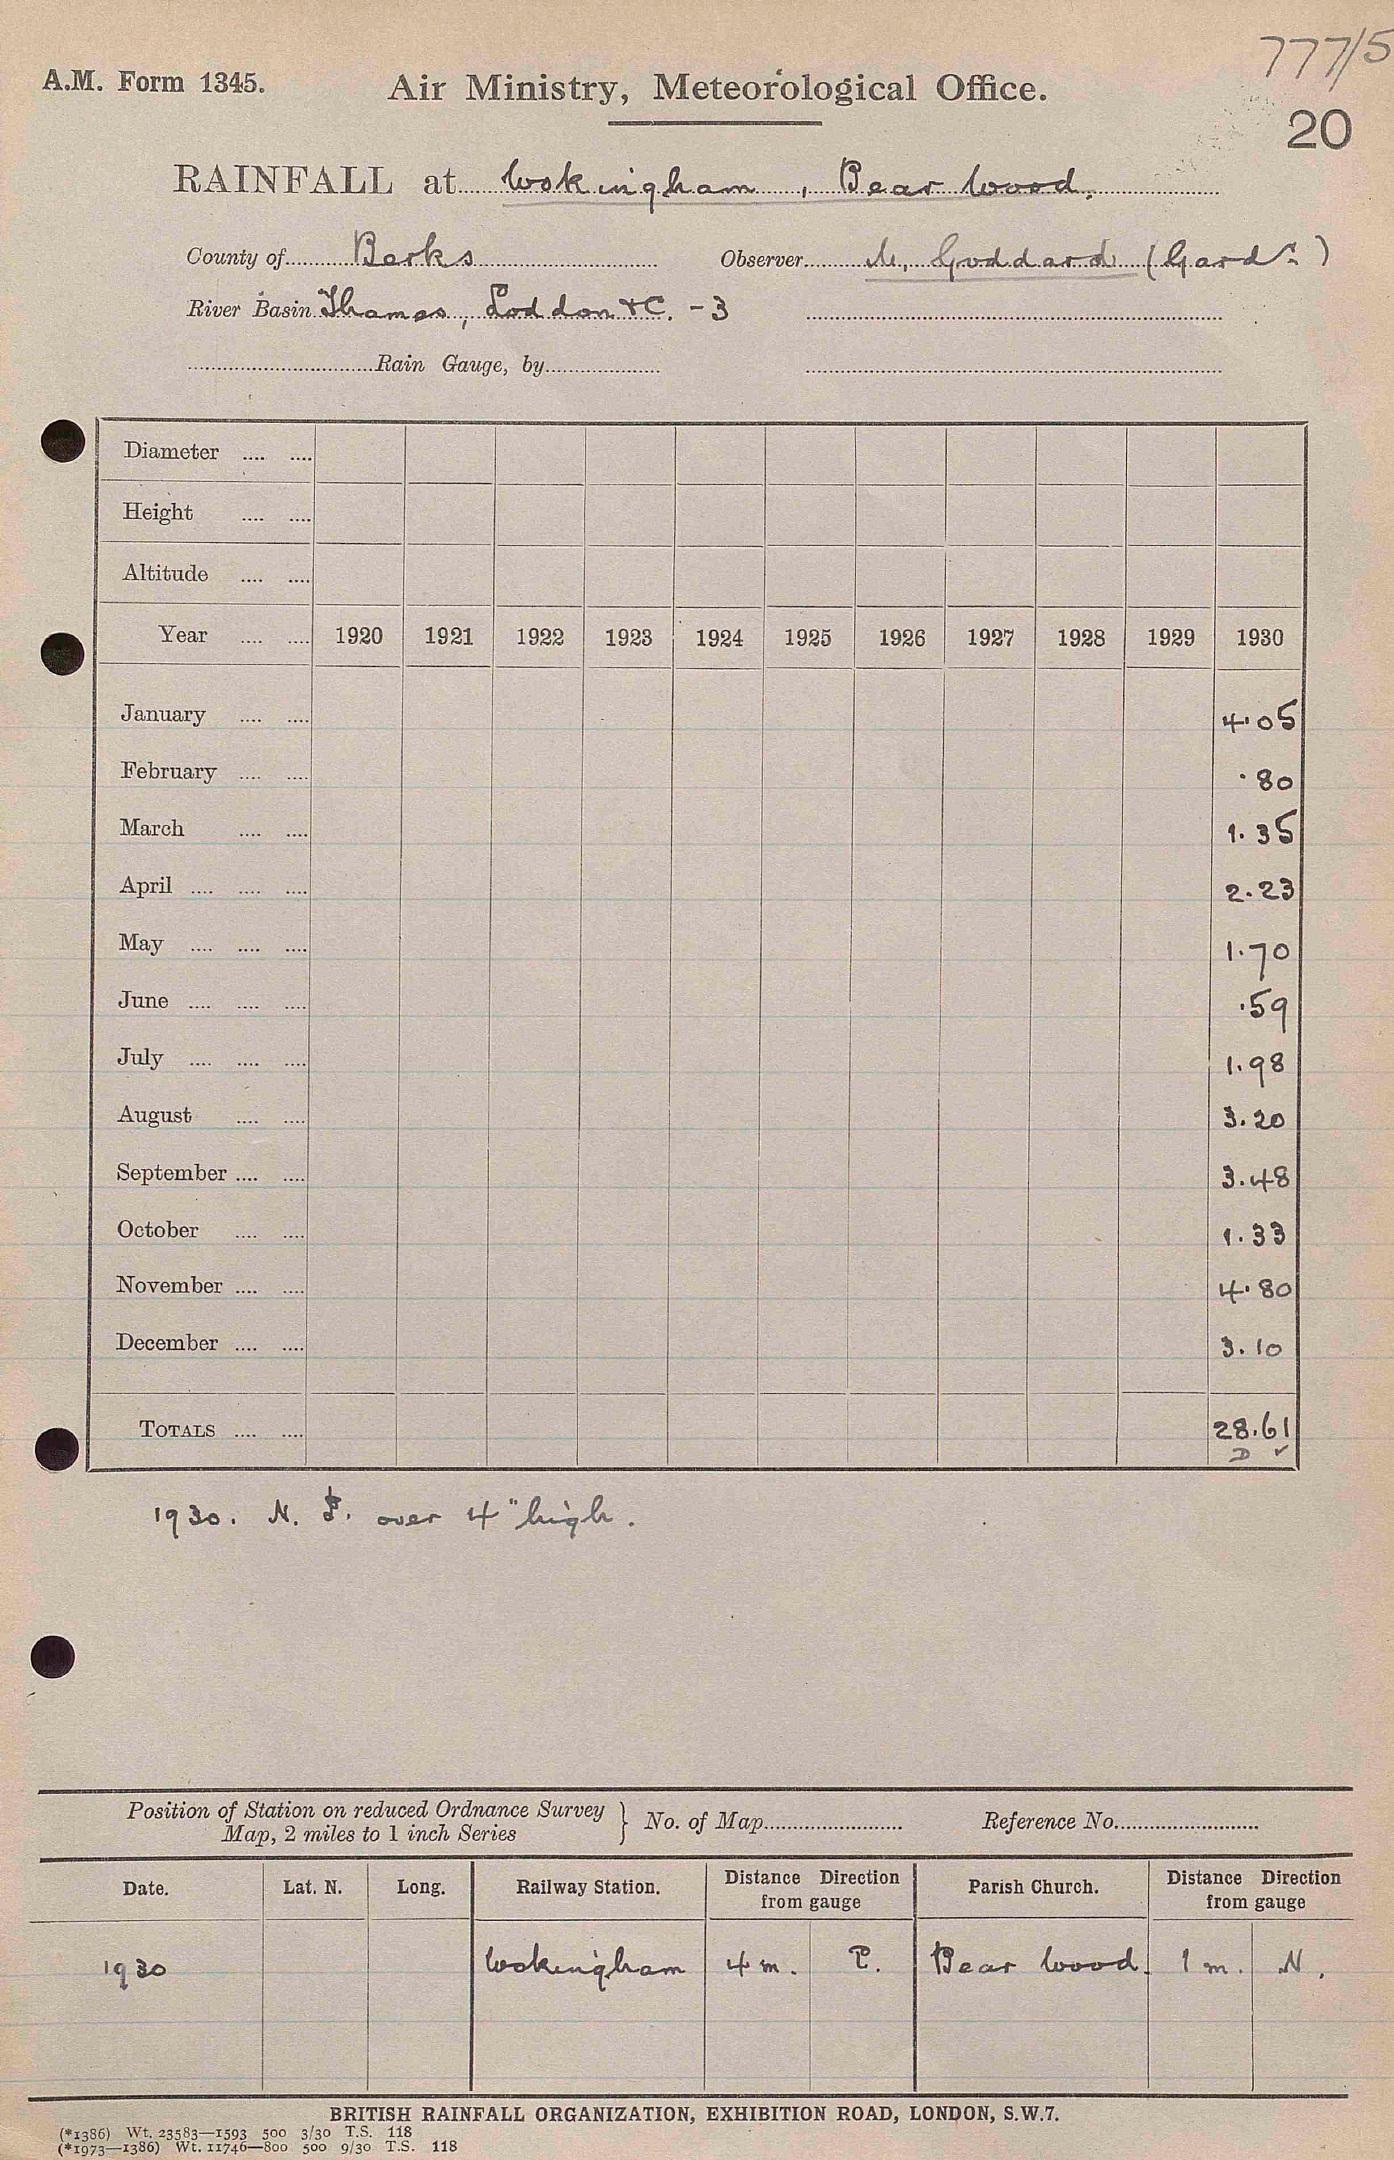 777/5
A.M. Form 1345. Air Ministry, Meteorological Office.
20
RAINFALL at Wokingham, Bear Wood.
County of Berks Observer M. Goddard (Gardr.)
River Basin Thames, Loddon &C. -3
Rain Gauge, by
Diameter
Height
Altitude
Year 1920 1921 1922 1923 1924 1925 1926 1927 1928 1929 1930
January 4.05
February .80
March 1.35
April 2.23
May 1.70
June .59
July 1.98
August 3.20
September 3.48
October 1.33
November 4.80
December 3.10
TOTALS 28.61
D ✓
1930. N. over 4" high.
Position of Station on reduced Ordnance Survey
Map, 2 miles to 1 inch Series } No. of Map Reference No.
Date. Lat. N. Long. Railway Station. Distance Direction from gauge Parish Church. Distance Direction from gauge
1930 Wokingham 4 m. E. Bear Wood. 1 m. N.
BRITISH RAINFALL ORGANIZATION, EXHIBITION ROAD, LONDON, S.W.7.
(*1386) Wt. 23583—1593 500 3/30 T.S. 118
(*1973—1386) Wt. 11746—800 500 9/30 T.S. 118